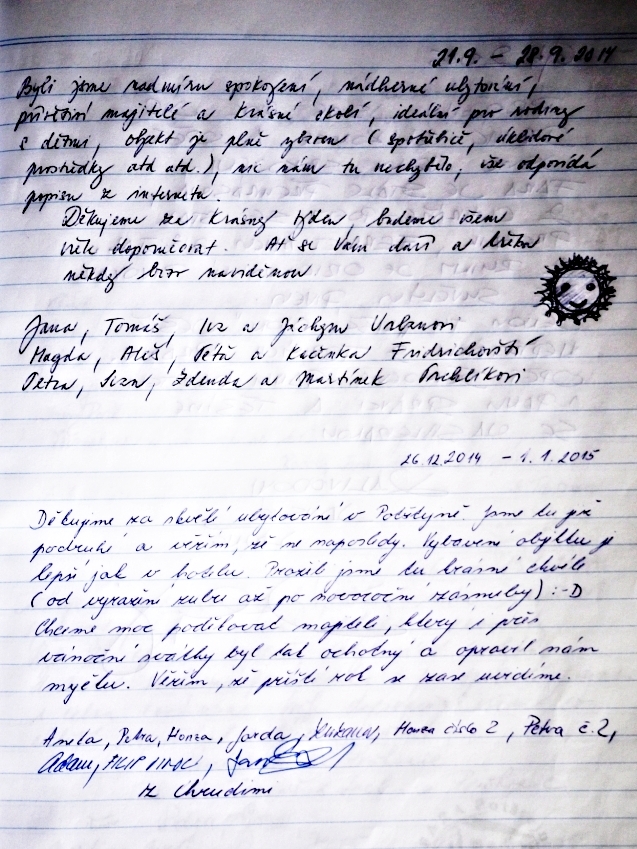 21.9. - 28.9. 2014
Byli jsme nadmíru spokojení, nádherné ubytování,
přívětiví majitelé a krásné okolí, ideální pro rodiny
s dětmi, objekt je plně vybaven (spotřebiče, úklidové
prostředky atd atd.), nic nám tu nechybělo, vše odpovídá
popisu z internetu.
Děkujeme za krásný týden budeme všem
vřele doporučovat. Ať se Vám daří a třeba
někdy brzo naviděnou
Jana, Tomáš, Iva a Jáchym Urbanovi
Magda, Aleš, Péťa a Kačenka Fridrichovští
Petra, Zdenda a Martínek
26.12.2014 - 1.1.2015
Děkujeme za skvělé ubytování v Potštýně. Jsme tu již
podruhé a věřím, že ne naposledy. Vybavení obýtku je
lepší jak v hotelu. Prožili jsme tu krásné chvíle
(od vyražení zubu až po novoroční zásnuby) :-D
Chceme moc poděkovat majiteli, který i přes
vánoční svátky byl tak ochotný a opravil nám
myčku. Věřím, že příští rok se zase uvidíme.
Aneta, Petra, Honza, Jarda, Honza číslo 2, Petra č.2,
Adam, FILIP
z Chrudimi